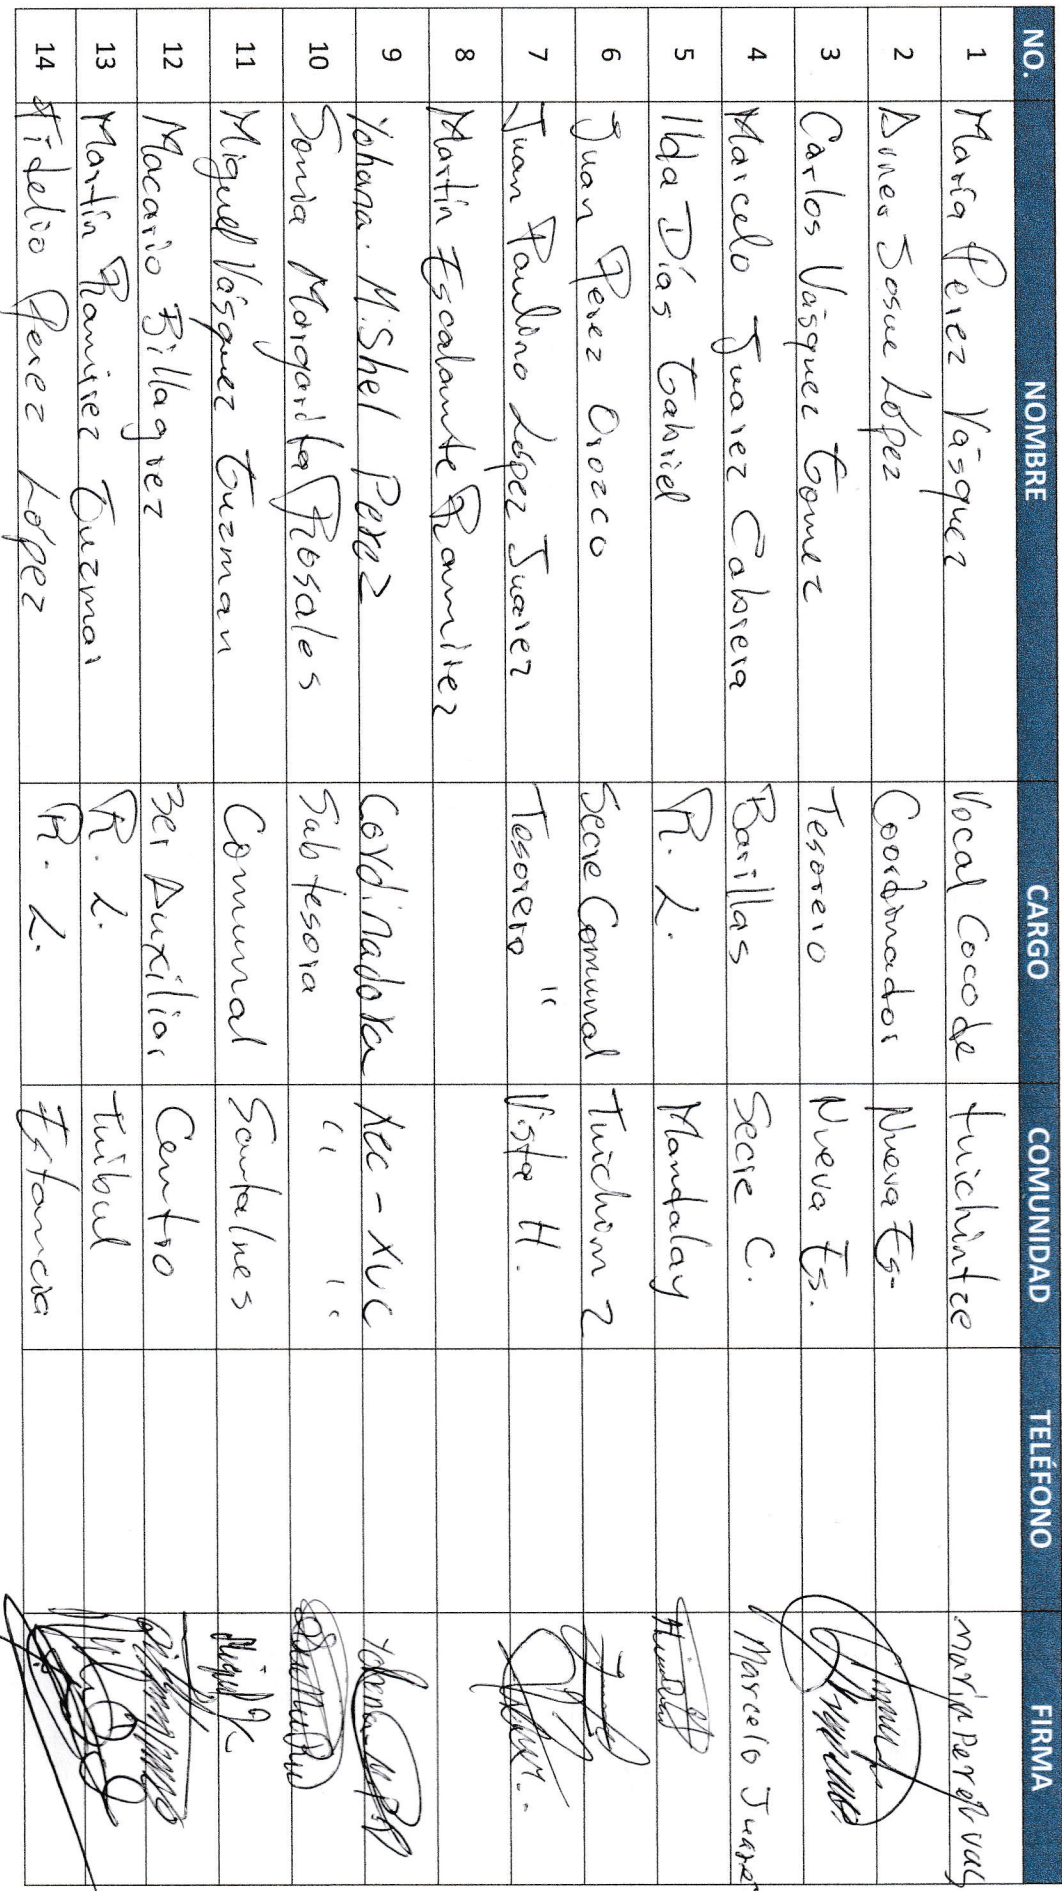 NO. NOMBRE CARGO COMUNIDAD TELÉFONO FIRMA
1 María Perez Vásquez Vocal Cocode tuichintze maria Perez vas
2 Josue López Coordinador Nueva Es-
3 Carlos Vásquez Gomez Tesorero Nueva Es.
4 Marcelo Juarez Cabrera Barillas Secre C. Marcelo Juarez
5 Ilda Días Gabriel R. L. Mandalay
6 Juan Perez Orozco Secre Comunal Tuichim 2
7 Juan Paulino López Juarez Tesorero " Vista H.
8 Martín Escalante Ramirez
9 Yohana. M.Shel Perez Cordinadora Xec - XUC
10 Sonia Margarita Rosales Sub tesora " "
11 Miguel Vásquez Guzman Comunal Santalnes
12 Macario Billagrez 3er Auxiliar Centro
13 Martín Ramirez Guzman R. L. Tuibul
14 Fidelio Perez López R. L. Estancia